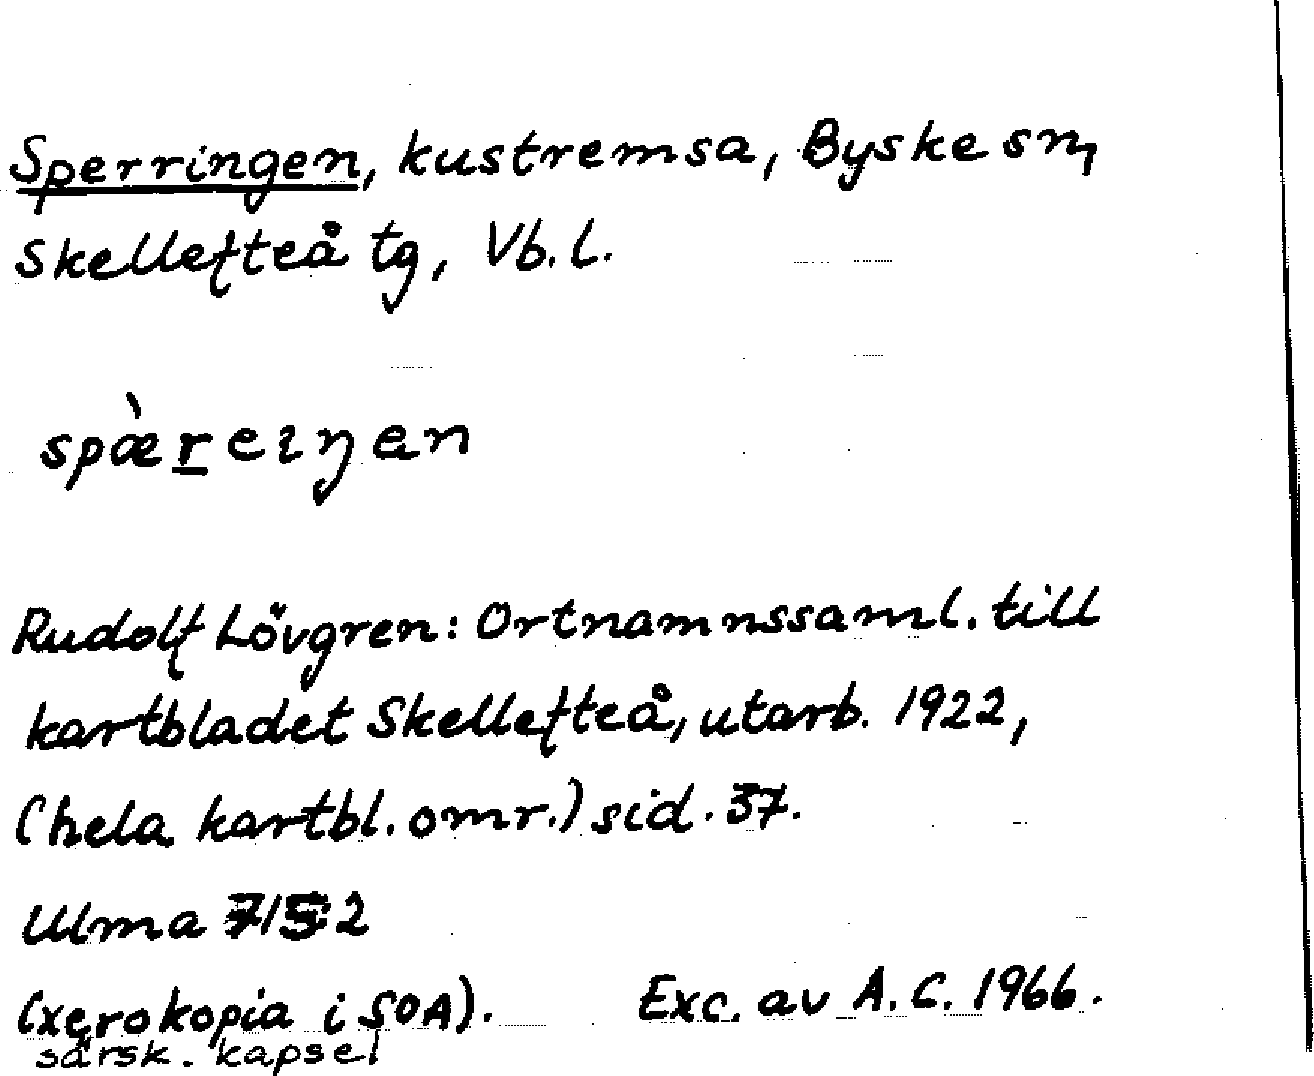 Sperringen, kustremsa, Byske sn,
Skellefteå tg, Vb. l.
spæ̀r̲eıŋen
Rudolf Lövgren: Ortnamnssaml. till
kartbladet Skellefteå, utarb. 1922,
(hela kartbl. omr.) sid. 37.
Ulma 7152
(xerokopia i SOA). Exc. av A. C. 1966.
särsk. kapsel